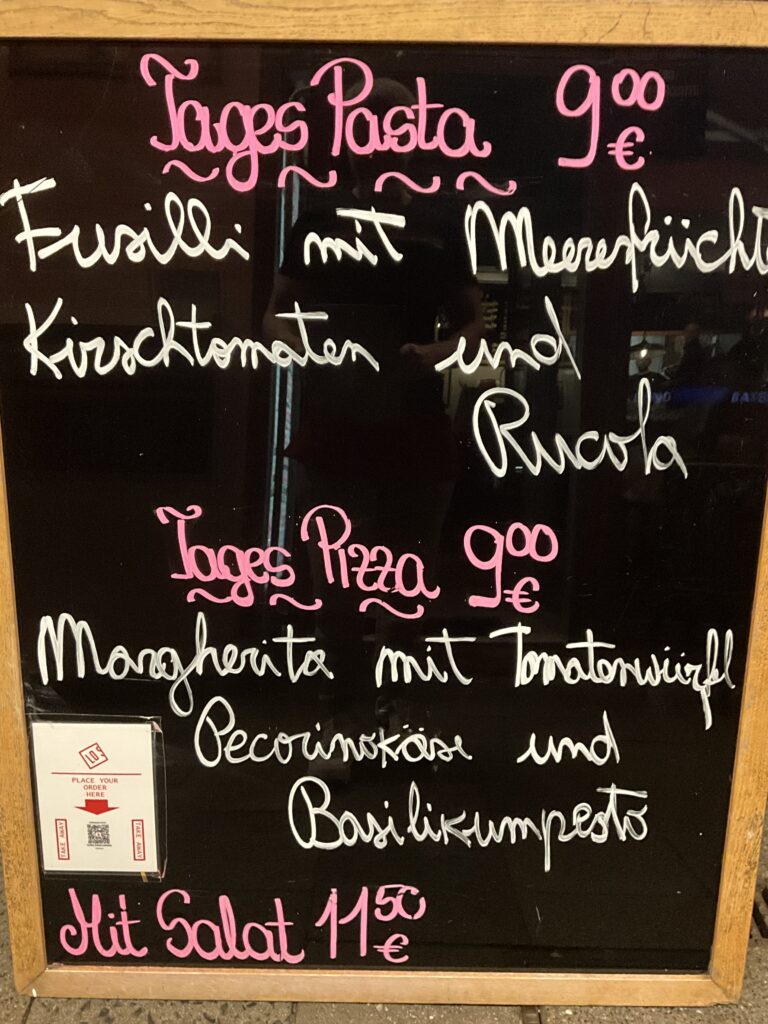 Tages Pasta 9.00 €
Fusilli mit Meeresfrücht
Kirschtomaten und
Rucola
Tages Pizza 9.00 €
Margherita mit Tomatenwürfl
Pecorinokäse und
Basilikumpesto
LO
PLACE YOUR
ORDER
HERE
TAKE AWAY
TAKE AWAY
Mit Salat 11.50 €